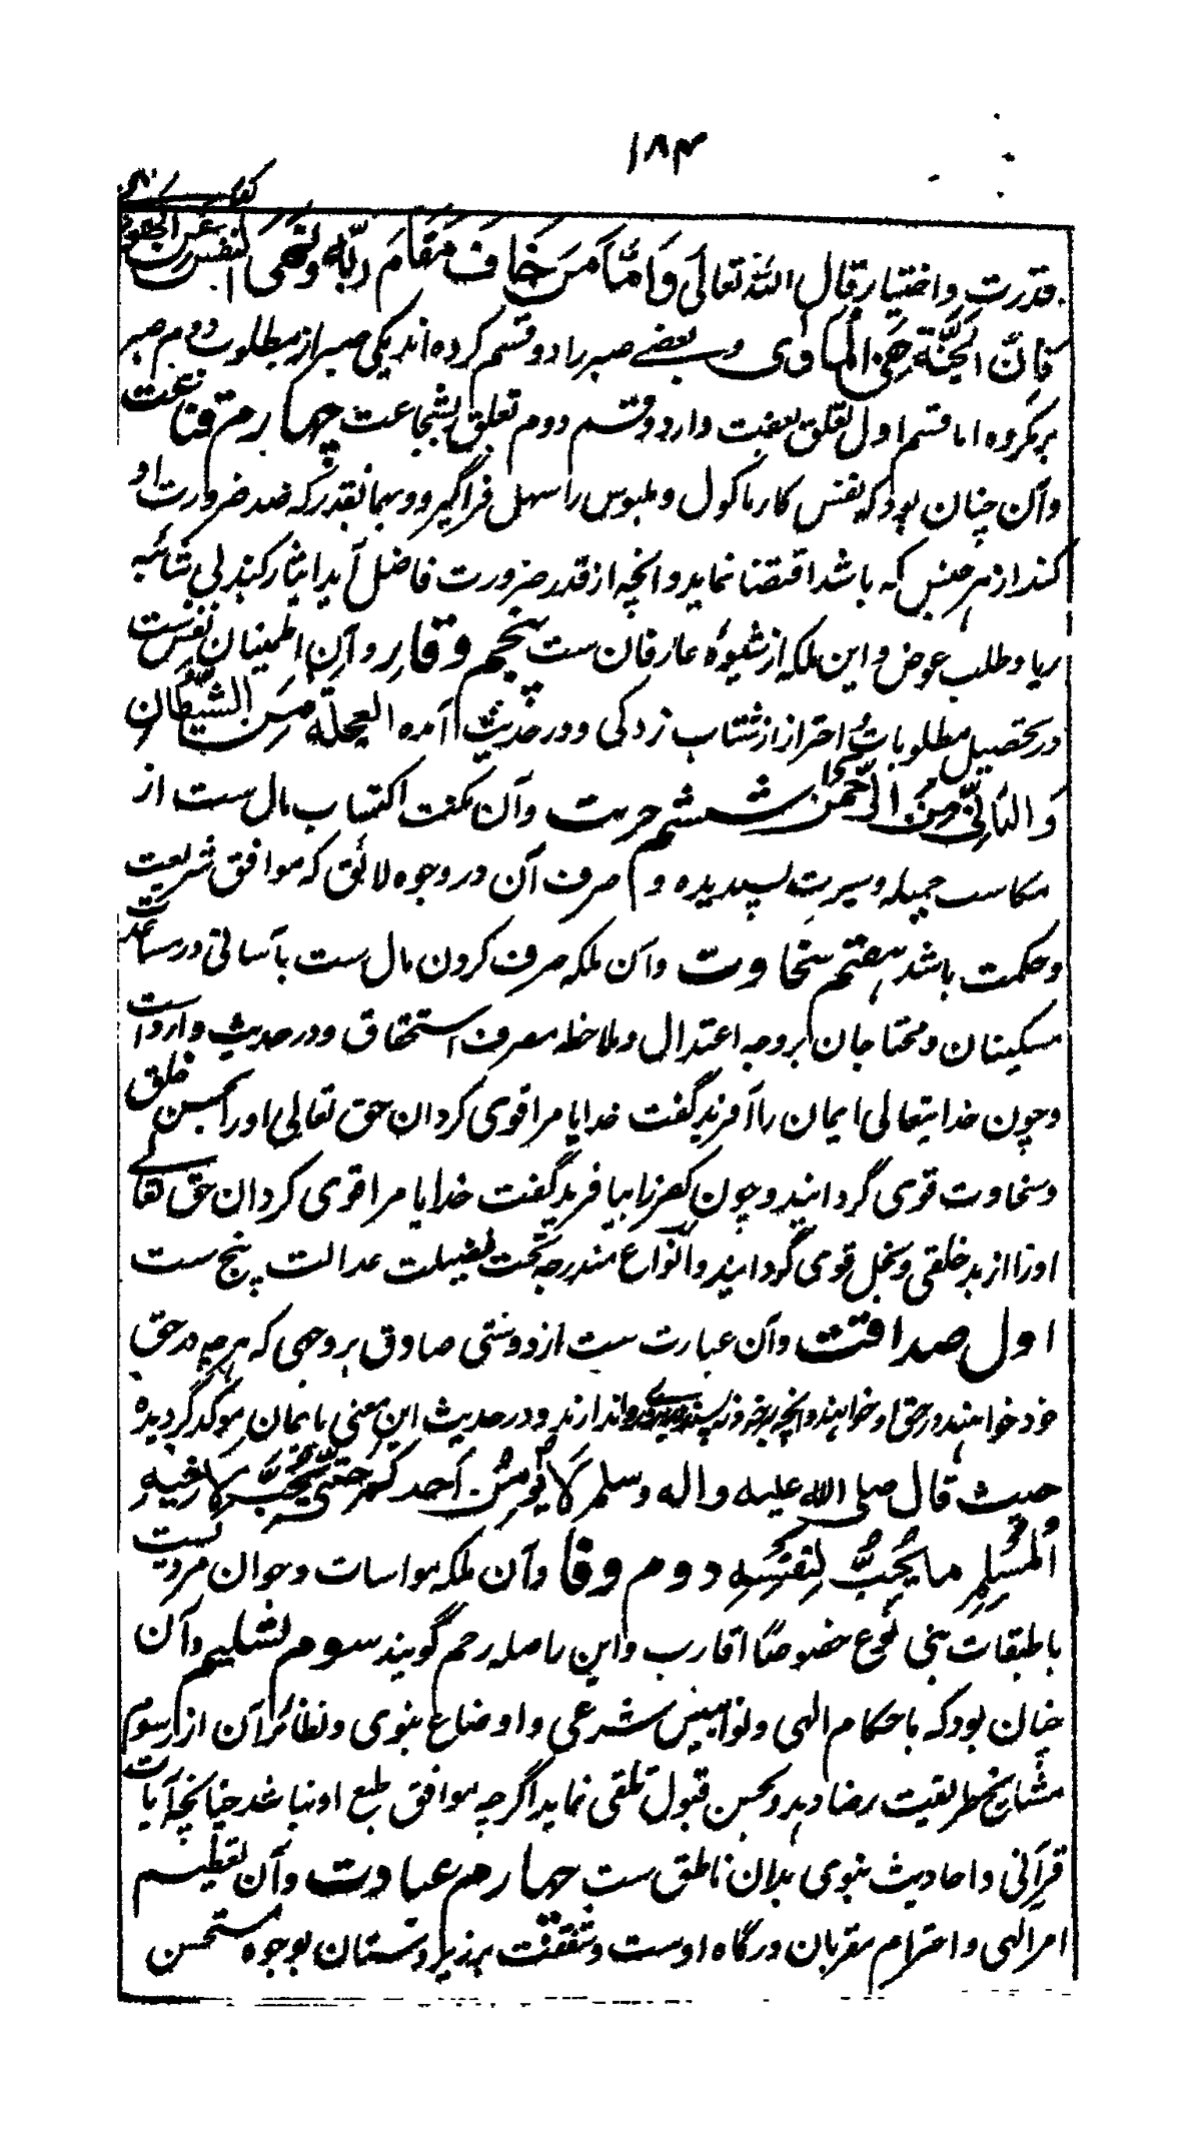 ۱۸۴
قدرت و اختیار قال الله تعالی وَاَمَّا مَنْ خَافَ مَقَامَ رَبِّهٖ وَنَهَی النفس عن الهوی
فَاِنَّ الْجَنَّةَ هِیَ الْمَاْوٰی و بعضے صبر را دو قسم کرده اند یکی صبر از مطلوب دوم صبر
بر مکروه اما قسم اول تعلق بعفت دارد و قسم دوم تعلق بشجاعت چهارم قناعت
و آن چنان بود که نفس کار ماکول و ملبوس را سهل فراگیرد و بهمانقدر که ضد ضرورت او
کند از هر جنس که باشد اقتضا نماید و انچه از قدر ضرورت فاضل آید ایثار کند بی شائبه
ریا و طلب عوض و این ملکه از شیوهٔ عارفان ست پنجم وقار و آن اطمینان نفس ست
در تحصیل مطلوبات و احتراز از شتاب زدگی و در حدیث آمده العجلة مِنَ الشَّیطَان
وَ التَّانِّی مِنَ الرَّحْمٰن ششم حریت و آن مکنت اکتساب مال ست از
مکاسب جمیله و سیرت پسندیده و صرف آن در وجوه لائق که موافق شریعت
و حکمت باشد هفتم سخاوت و آن ملکه صرف کردن مال ست بآسانی در مساعدت
مسکینان و محتاجان بر وجه اعتدال و ملاحظه مصرف استحقاق و در حدیث وارد است
و چون خدایتعالی ایمان را آفرید گفت خدایا مرا قوی گردان حق تعالی او را بحسن خلق
و سخاوت قوی گردانید و چون کفر را بیافرید گفت خدایا مرا قوی گردان حق تعالے
او را از بد خلقی و بخل قوی گردانید و انواع مندرجه تحت فضیلت عدالت پنج ست
اول صداقت و آن عبارت ست از دوستی صادق بروجهی که هرچه در حق
خود خواهند در حق او خواهند و انچه بر خود نه پسندند بر وی روا ندارند و در حدیث این معنی بایمان موکد گردیده
حیث قال صلی الله علیه و اله و سلم لَا یُؤمِنُ اَحدکم حَتّٰی یُحِبَّ لِاَخِیهِ
الْمُسْلِمِ مَا یُحِبُّ لِنَفْسِهِ دوم وفا و آن ملکه مواسات و جوان مردیست
با طبقات بنی نوع خصوصًا اقارب و این را صله رحم گویند سوم تسلیم و آن
چنان بود که با حکام الهی و نوامیس شرعی و اوضاع نبوی و نظائر آن از رسوم
مشایخ طریقت رضا دهد و بحسن قبول تلقی نماید اگرچه موافق طبع او نباشد چنانچه آیات
قرآنی و احادیث نبوی بدان ناطق ست چهارم عبادت و آن تعظیم
امر الهی و احترام مقربان درگاه اوست و شفقت بر زیردستان بوجوه مستحسن